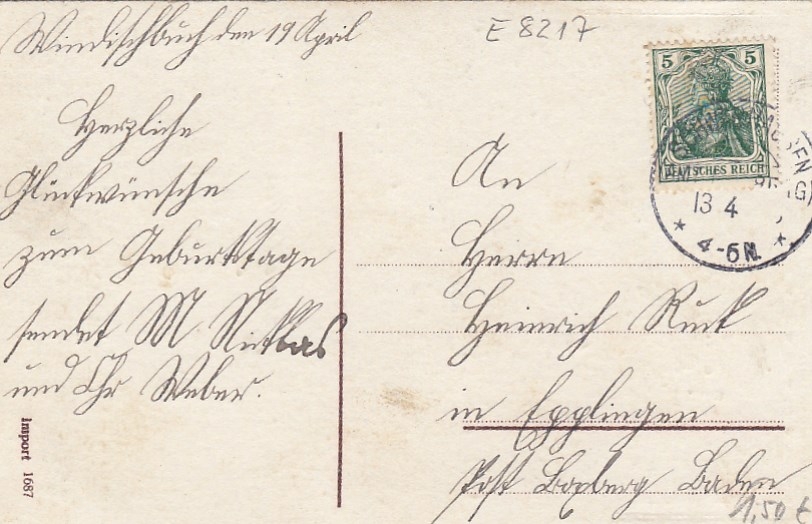 Windischbuch den 19 April
E 8217
Herzliche
Glückwünsche
zum Geburtstage
sendet M Nicklas
und Chr Weber.
Import 1687
5 5
DEUTSCHES REICH
13 4
* 4-5 N. *
An
Herrn
Heinrich Ruck
in Epplingen
Post Boxberg Baden
1,50 €